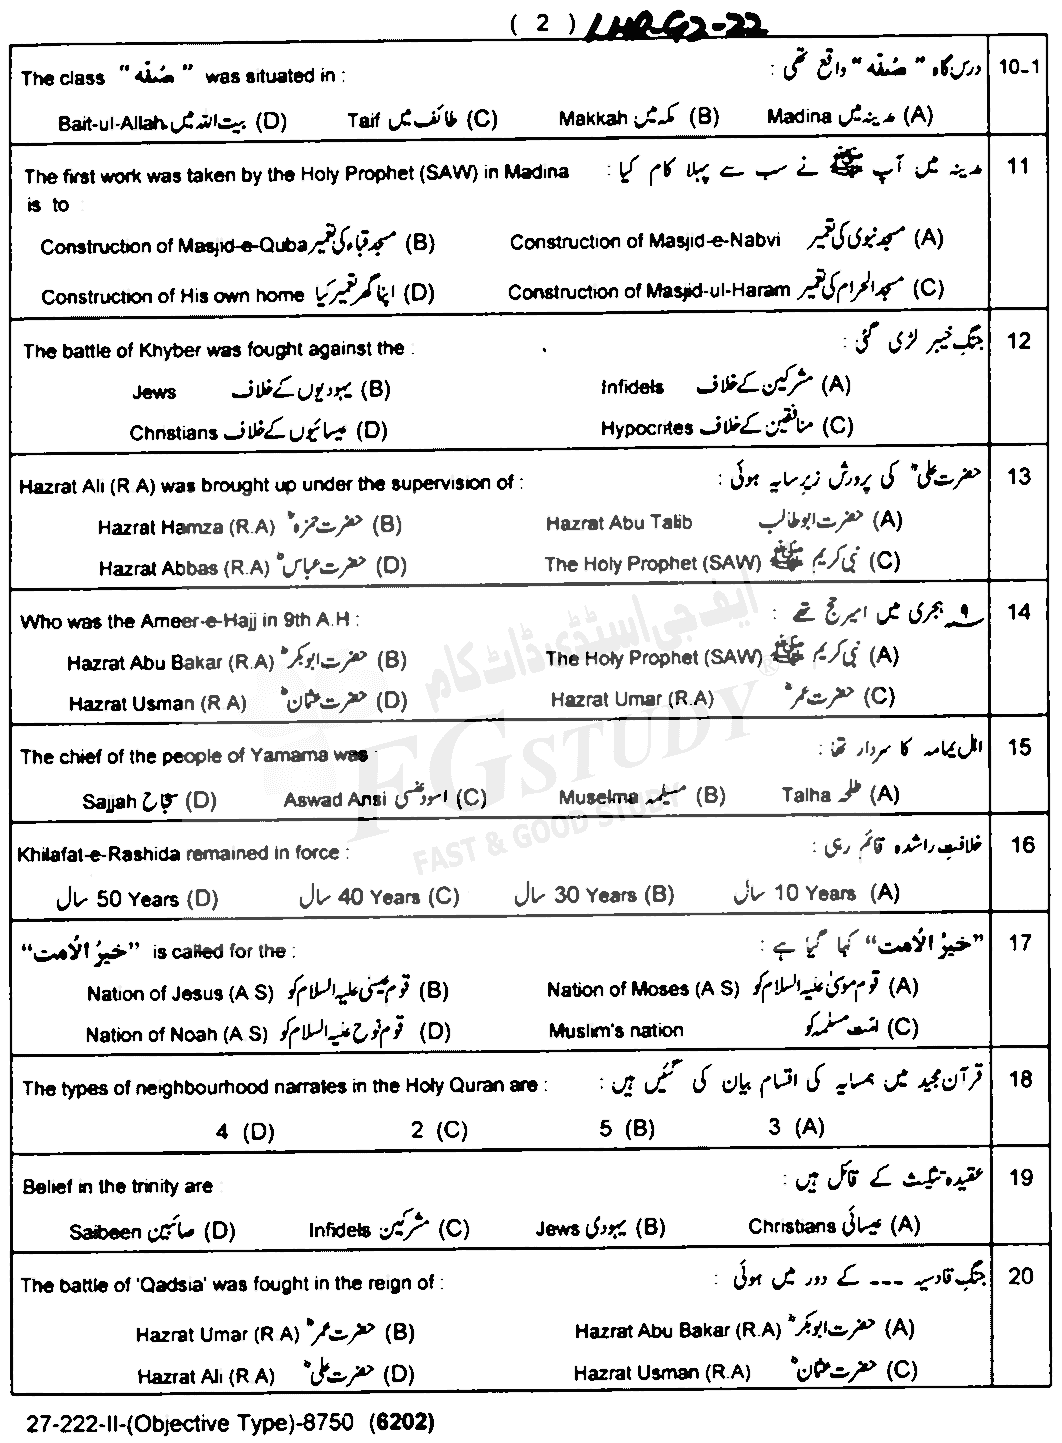 ( 2 ) LHR-G2-22
The class "صُفّہ" was situated in : درس گاہ "صُفّہ" واقع تھی : 10-1
Bait-ul-Allah بیت اللہ میں (D) Taif طائف میں (C) Makkah مکہ میں (B) Madina مدینہ میں (A)
The first work was taken by the Holy Prophet (SAW) in Madina مدینہ میں آپ ﷺ نے سب سے پہلا کام کیا : 11
is to
Construction of Masjid-e-Quba مسجد قباء کی تعمیر (B) Construction of Masjid-e-Nabvi مسجد نبوی کی تعمیر (A)
Construction of His own home اپنا گھر تعمیر کیا (D) Construction of Masjid-ul-Haram مسجد الحرام کی تعمیر (C)
The battle of Khyber was fought against the : جنگِ خیبر لڑی گئی : 12
Jews یہودیوں کے خلاف (B) Infidels مشرکین کے خلاف (A)
Christians عیسائیوں کے خلاف (D) Hypocrites منافقین کے خلاف (C)
Hazrat Ali (R A) was brought up under the supervision of : حضرت علیؓ کی پرورش زیرِ سایہ ہوئی : 13
Hazrat Hamza (R.A) حضرت حمزہؓ (B) Hazrat Abu Talib حضرت ابو طالب (A)
Hazrat Abbas (R.A) حضرت عباسؓ (D) The Holy Prophet (SAW) نبی کریم ﷺ (C)
Who was the Ameer-e-Hajj in 9th A.H : ۹ ہجری میں امیرِ حج تھے : 14
Hazrat Abu Bakar (R.A) حضرت ابوبکرؓ (B) The Holy Prophet (SAW) نبی کریم ﷺ (A)
Hazrat Usman (R A) حضرت عثمانؓ (D) Hazrat Umar (R.A) حضرت عمرؓ (C)
The chief of the people of Yamama was : اہل یمامہ کا سردار تھا : 15
Sajjah سجاح (D) Aswad Ansi اسود عنسی (C) Muselma مسیلمہ (B) Talha طلحہ (A)
Khilafat-e-Rashida remained in force : خلافتِ راشدہ قائم رہی : 16
50 Years سال (D) 40 Years سال (C) 30 Years سال (B) 10 Years سال (A)
"خیرُ الاُمت" is called for the : "خیرُ الاُمت" کہا گیا ہے : 17
Nation of Jesus (A S) قوم عیسیٰ علیہ السلام کو (B) Nation of Moses (A S) قوم موسیٰ علیہ السلام کو (A)
Nation of Noah (A S) قوم نوح علیہ السلام کو (D) Muslim's nation اُمتِ مسلمہ کو (C)
The types of neighbourhood narrates in the Holy Quran are : قرآن مجید میں ہمسایہ کی اقسام بیان کی گئیں ہیں : 18
4 (D) 2 (C) 5 (B) 3 (A)
Belief in the trinity are عقیدہ تثلیث کے قائل ہیں : 19
Saibeen صائبین (D) Infidels مشرکین (C) Jews یہودی (B) Christians عیسائی (A)
The battle of 'Qadsia' was fought in the reign of : جنگِ قادسیہ --- کے دور میں ہوئی : 20
Hazrat Umar (R A) حضرت عمرؓ (B) Hazrat Abu Bakar (R.A) حضرت ابوبکرؓ (A)
Hazrat Ali (R A) حضرت علیؓ (D) Hazrat Usman (R.A) حضرت عثمانؓ (C)
27-222-II-(Objective Type)-8750 (6202)
ایف جی اسٹڈی ڈاٹ کام
FG STUDY ®
FAST & GOOD STUDY